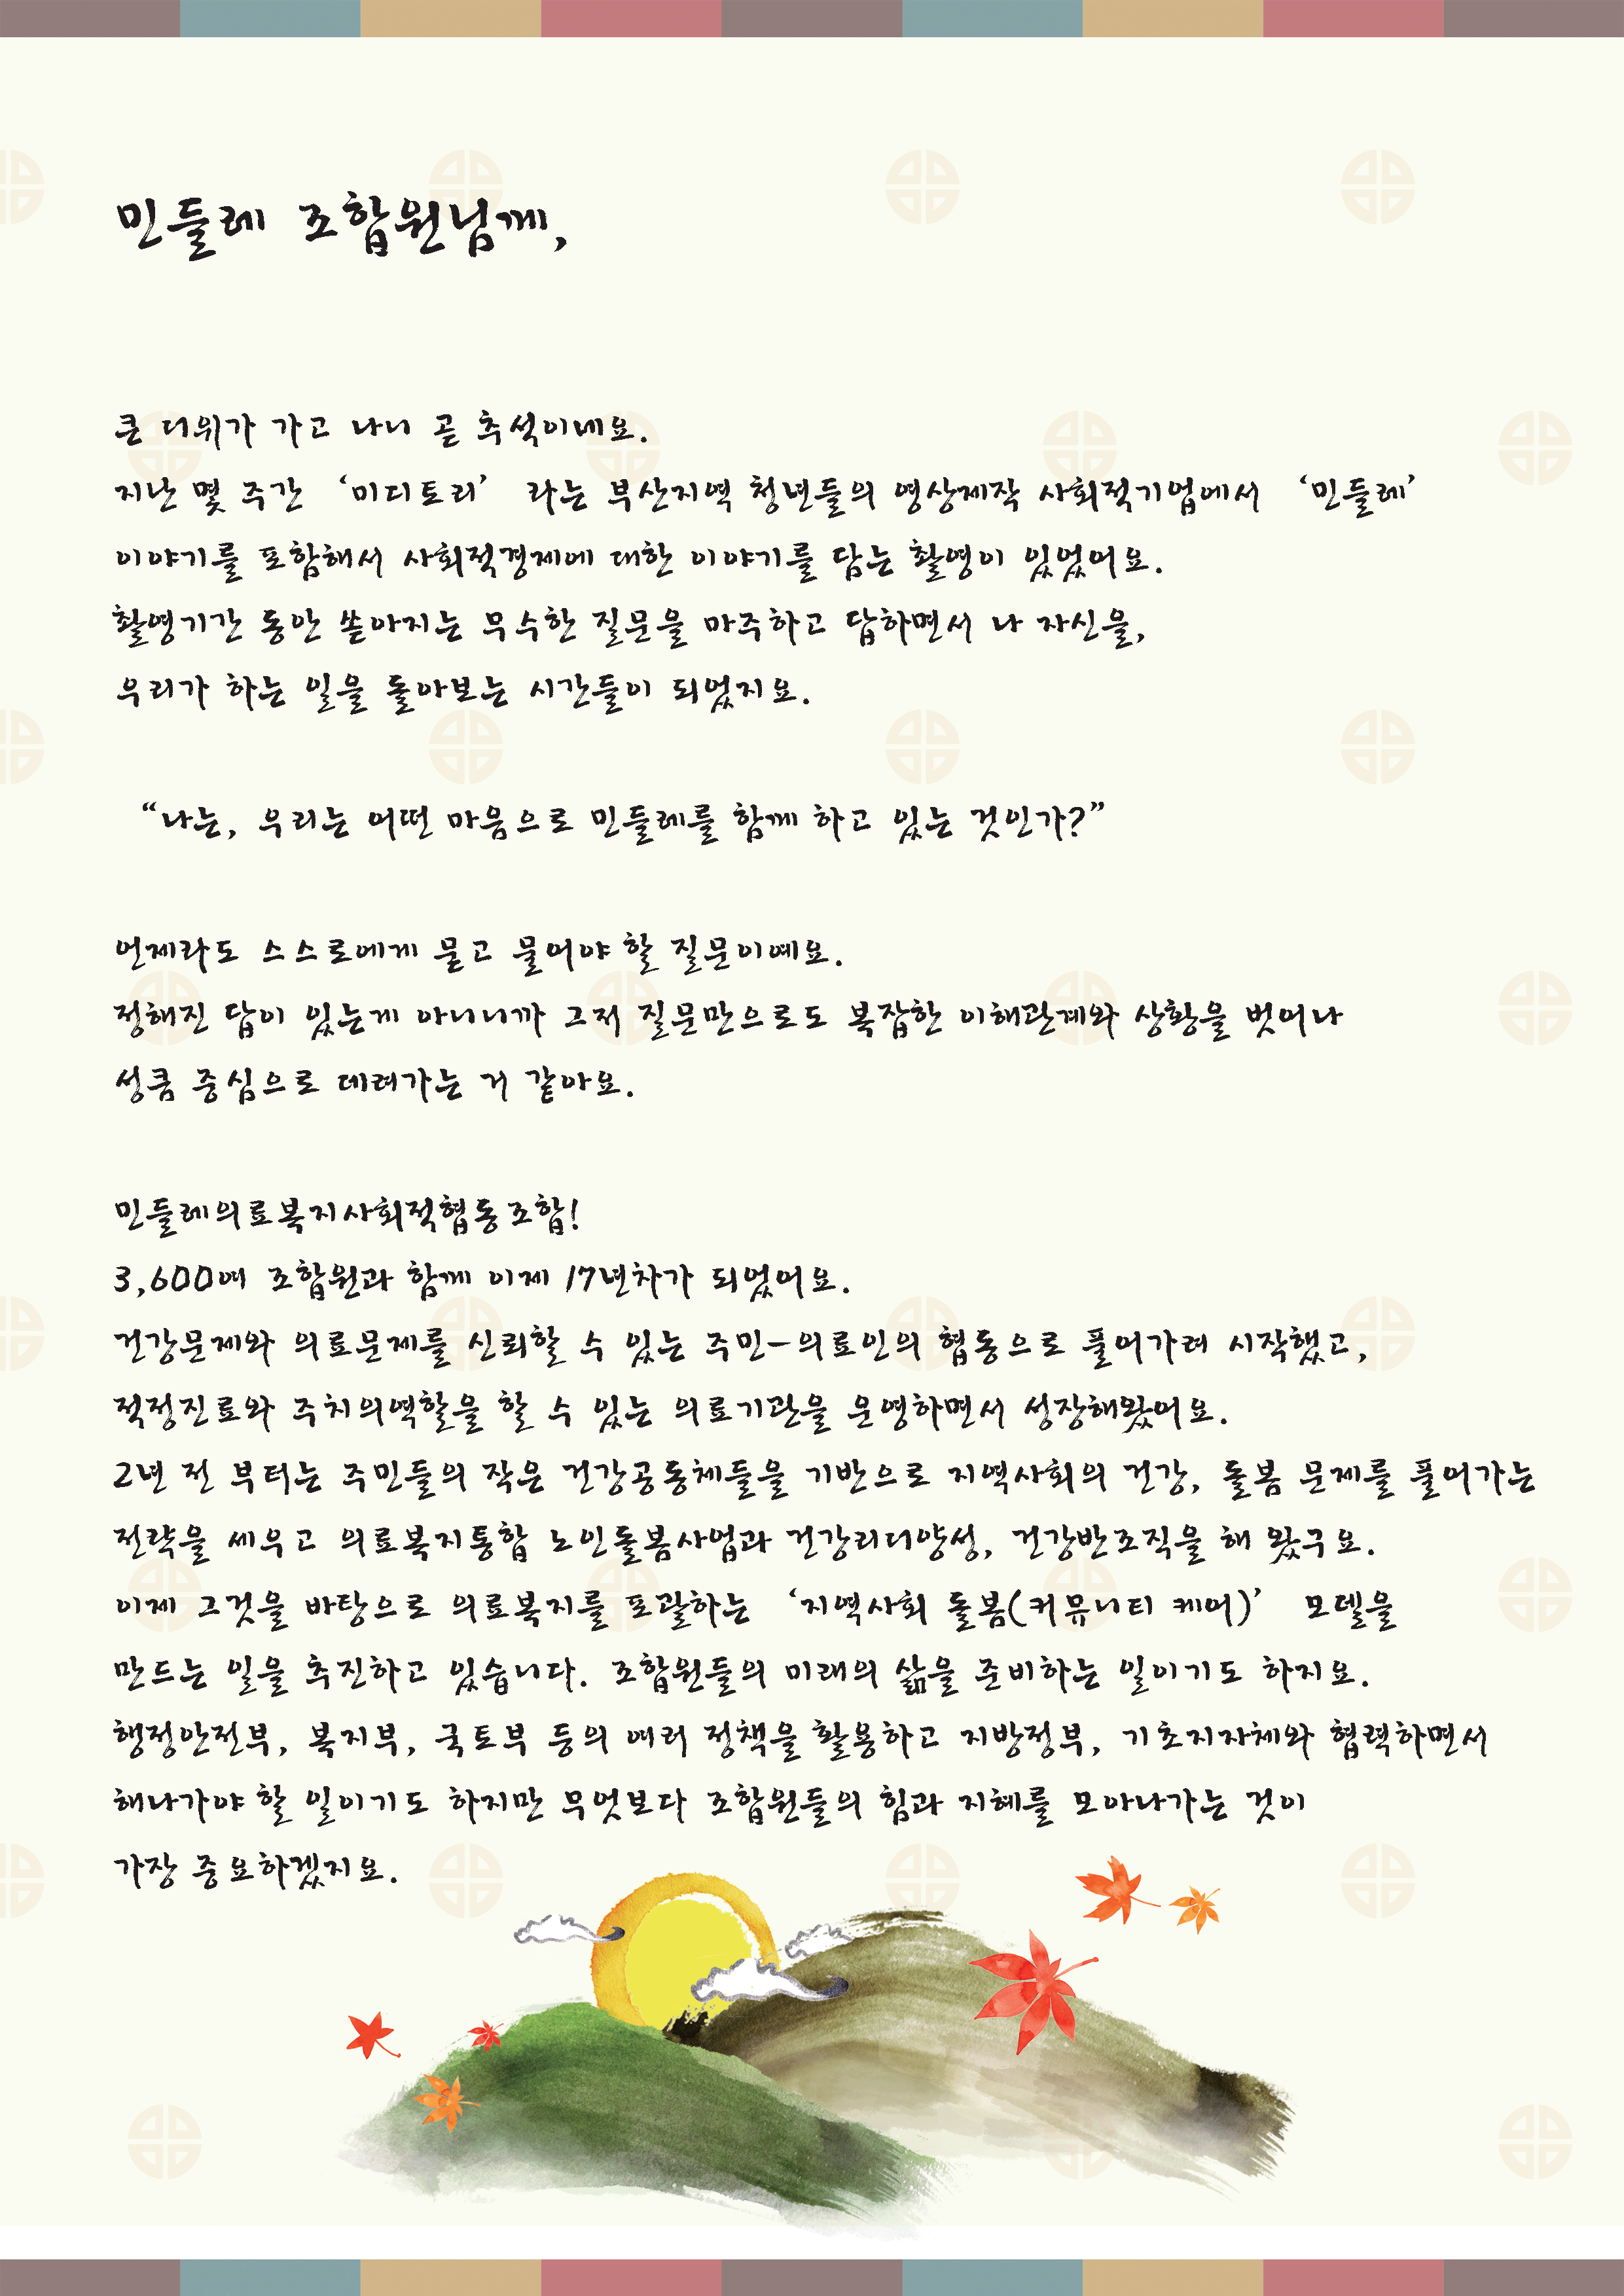 민들레 조합원님께,
큰 더위가 가고 나니 곧 추석이네요.
지난 몇 주간 ‘미디토리’ 라는 부산지역 청년들의 영상제작 사회적기업에서 ‘민들레’
이야기를 포함해서 사회적경제에 대한 이야기를 담는 촬영이 있었어요.
촬영기간 동안 쏟아지는 무수한 질문을 마주하고 답하면서 나 자신을,
우리가 하는 일을 돌아보는 시간들이 되었지요.
“나는, 우리는 어떤 마음으로 민들레를 함께 하고 있는 것인가?”
언제라도 스스로에게 묻고 물어야 할 질문이예요.
정해진 답이 있는게 아니니까 그저 질문만으로도 복잡한 이해관계와 상황을 벗어나
성큼 중심으로 데려가는 거 같아요.
민들레의료복지사회적협동조합!
3,600여 조합원과 함께 이제 17년차가 되었어요.
건강문제와 의료문제를 신뢰할 수 있는 주민-의료인의 협동으로 풀어가려 시작했고,
적정진료와 주치의역할을 할 수 있는 의료기관을 운영하면서 성장해왔어요.
2년 전 부터는 주민들의 작은 건강공동체들을 기반으로 지역사회의 건강, 돌봄 문제를 풀어가는
전략을 세우고 의료복지통합 노인돌봄사업과 건강리더양성, 건강반조직을 해 왔구요.
이제 그것을 바탕으로 의료복지를 포괄하는 ‘지역사회 돌봄(커뮤니티 케어)’ 모델을
만드는 일을 추진하고 있습니다. 조합원들의 미래의 삶을 준비하는 일이기도 하지요.
행정안전부, 복지부, 국토부 등의 여러 정책을 활용하고 지방정부, 기초지자체와 협력하면서
해나가야 할 일이기도 하지만 무엇보다 조합원들의 힘과 지혜를 모아나가는 것이
가장 중요하겠지요.